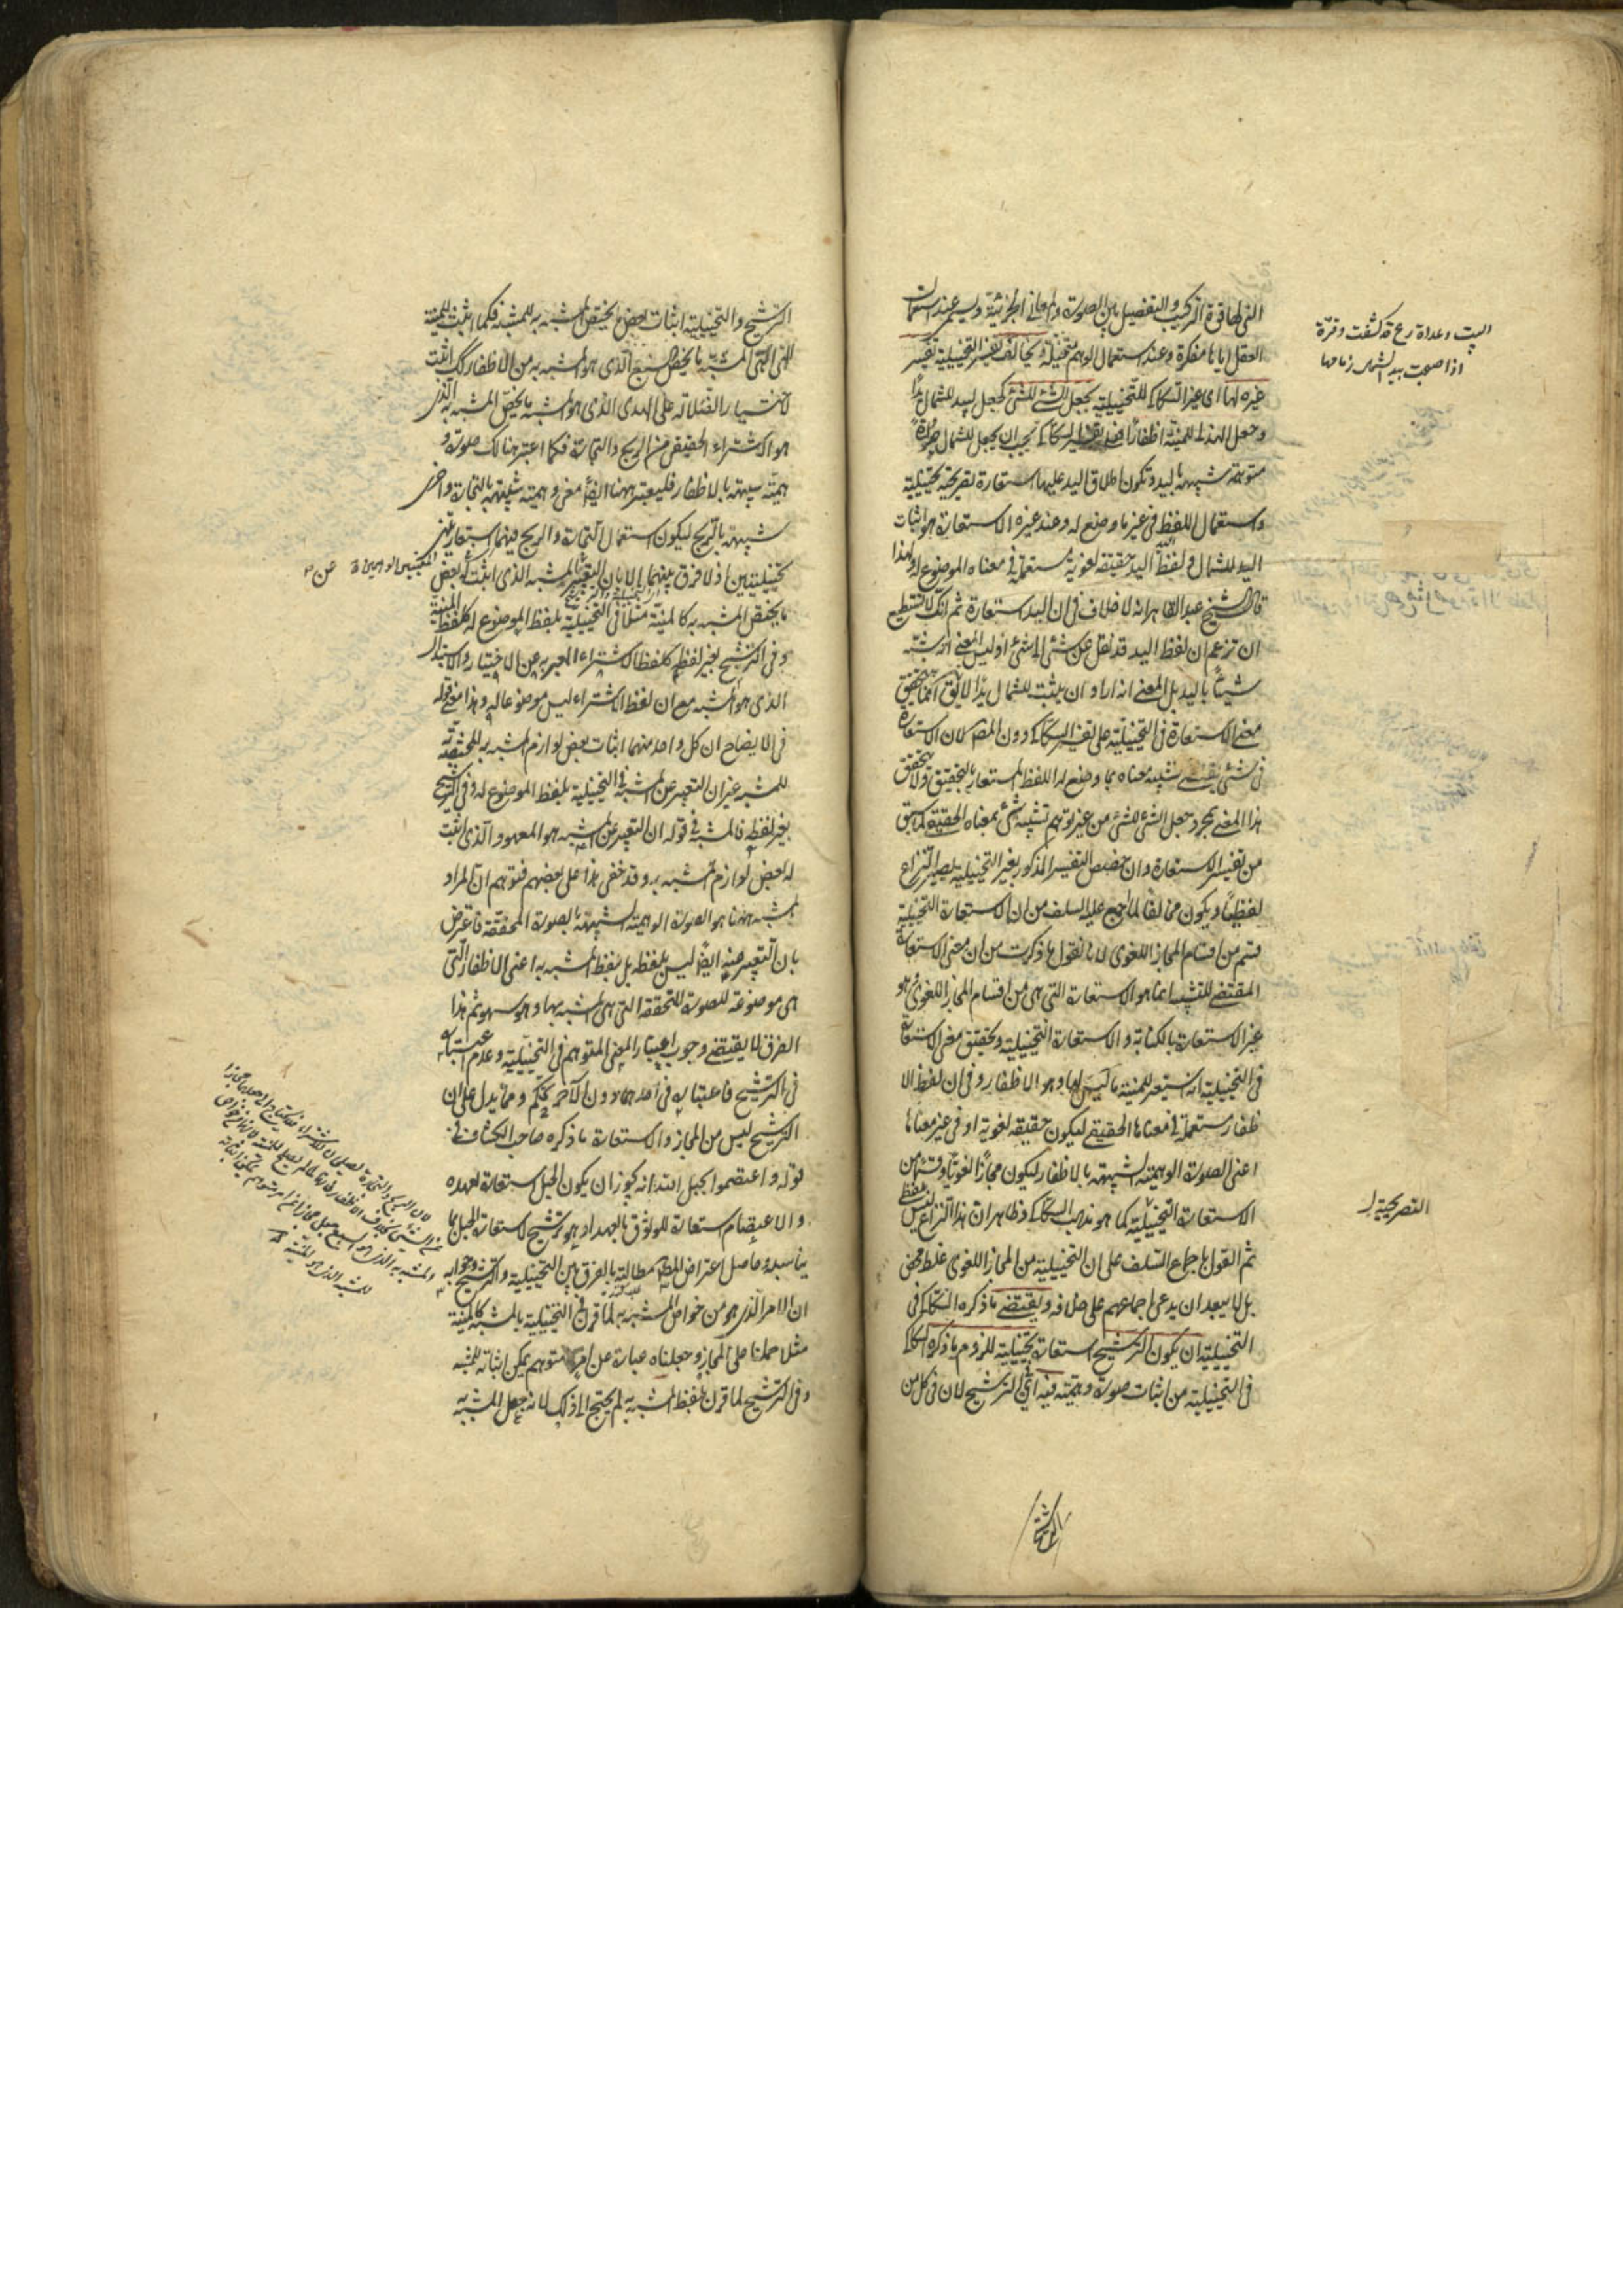 التى لها قوة التركيب والتفصيل بين الصورة والمعانى الجزئية ويسمى عند استعمال
العقل اياها مفكرة وعند استعمال الوهم متخيلة ويخالف تفسيره للتخييلية تفسير
غيره لها اى غير السكاكى للتخييلية بجعل الشئ للشئ كجعل اليد للشمال
وجعل لبيد للمنية اظفارا فعلى تفسير السكاكى يجب ان يجعل للشمال صورة
متوهمة شبيهة باليد ويكون اطلاق اليد عليها استعارة تصريحية تخييلية
واستعمال اللفظ فى غير ما وضع له وعند غيره الاستعارة هو اثبات
اليد للشمال ولفظ اليد حقيقة لغوية مستعملة فى معناه الموضوع له ولهذا
قال الشيخ عبد القاهر انه لا خلاف فى ان اليد استعارة ثم انك لا تستطيع
ان تزعم ان لفظ اليد قد نقل عن شئ الى شئ اذ ليس المعنى انه شبه
شيئا باليد بل المعنى انه اراد ان يثبت للشمال يدا لا يقال انما يتحقق
معنى الاستعارة فى التخييلية على تفسير السكاكى دون المص لان الاستعارة
فى شئ يقتضى تشبيه معناه بما وضع له اللفظ المستعار بالتحقيق ولا يتحقق
هذا المعنى بمجرد جعل الشئ للشئ من غير توهم تشبيه شئ بمعناه الحقيقى لما سبق
من تفسير الاستعارة وان خصص التفسير المذكور بغير التخييلية يصير النزاع
لفظيا ويكون مخالفا لما اجمع عليه السلف من ان الاستعارة التخييلية
قسم من اقسام المجاز اللغوى لانا نقول ما ذكرت من ان معنى الاستعارة
المقتضى للتشبيه انما هو الاستعارة التى هى من اقسام المجاز اللغوى هو
غير الاستعارة بالكناية والاستعارة التخييلية وتحقيق معنى الاستعارة
فى التخييلية انه استعير للمنية ما ليس لها وهو الاظفار وفى ان لفظ الا
ظفار مستعملة فى معناها الحقيقى ليكون حقيقة لغوية او فى غير معناها
اعنى الصورة الوهمية الشبيهة بالاظفار ليكون مجازا لغويا وقسما من
الاستعارة التخييلية كما هو مذهب السكاكى وظاهر ان هذا النزاع ليس بلفظى
ثم القول باجماع السلف على ان التخييلية من المجاز اللغوى غلط محض
بل لا يبعد ان يدعى اجماعهم على خلافه ويقتضى ما ذكره السكاكى فى
التخييلية ان يكون الترشيح استعارة تخييلية للزوم ما ذكره السكاكى
فى التخييلية من اثبات صورة وهمية فيه اى الترشيح لان فى كل من
البيت وغداة ريح قد كشفت وقرة
اذا صبحت بيد الشمال زمامها
التصريحية
الترشيح والتخييلية اثبات بعض ما يختص المشبه به للمشبه فكما اثبت للمنية
التى هى المشبه ما يخص السبع الذى هو المشبه به من الاظفار كذلك اثبت
لاختيار الضلالة على الهدى الذى هو المشبه ما يخص المشبه به الذى
هو الاشتراء الحقيقى من الربح والتجارة فكما اعتبر هنالك صورة و
همية شبيهة بالاظفار فليعتبر ههنا ايضا معنى وهمية شبيهة بالتجارة واخرى
شبيهة بالربح ليكون استعمال التجارة والربح فيهما استعارتين
تخييليتين اذ لا فرق بينهما الا بان التعبير عن المشبه الذى اثبت له بعض
ما يختص المشبه به كالمنية مثلا فى التخييلية بلفظ الموضوع له كلفظ المنية
وفى الترشيح بغير لفظه كلفظ الاشتراء المعبر به عن الاختيار والاستبدال
الذى هو المشبه مع ان لفظ الاشتراء ليس موضوعا له وهذا معنى قوله
فى الايضاح ان كل واحد منهما اثبات بعض لوازم المشبه به المختصة
للمشبه غير ان التعبير عن المشبه فى التخييلية بلفظ الموضوع له وفى الترشيح
بغير لفظه فالمشبه فى قوله ان التعبير عن المشبه هو المعهود الذى اثبت
له بعض لوازم المشبه به وقد خفى هذا على بعضهم فتوهم ان المراد
بالمشبه ههنا هو الصورة الوهمية الشبيهة بالصورة المحققة فاعترض
بان التعبير عنه ايضا ليس بلفظه بل بلفظ المشبه به اعنى الاظفار التى
هى موضوعة للصورة المتحققة التى هى المشبه بها وهو سهو ثم هذا
الفرق لا يقتضى وجوب اعتبار المعنى المتوهم فى التخييلية وعدم اعتباره
فى الترشيح فاعتباره فى احدهما دون الآخر تحكم ومما يدل على ان
الترشيح ليس من المجاز والاستعارة ما ذكره صاحب الكشاف فى
قوله واعتصموا بحبل الله انه يجوز ان يكون الحبل استعارة لعهده
والاعتصام استعارة للوثوق بالعهد او هو ترشيح لاستعارة الحبل بما
يناسبه وحاصل اعتراض المص مطالبته بالفرق بين التخييلية والترشيح وجوابه
ان الامر الذى هو من خواص المشبه به لما قرن فى التخييلية بالمشبه كالمنية
مثلا حملنا على المجاز وجعلناه عبارة عن امر متوهم يمكن اثباته للمشبه
وفى الترشيح لما قرن بلفظ المشبه به لم يحتج الى ذلك لانه جعل المشبه به